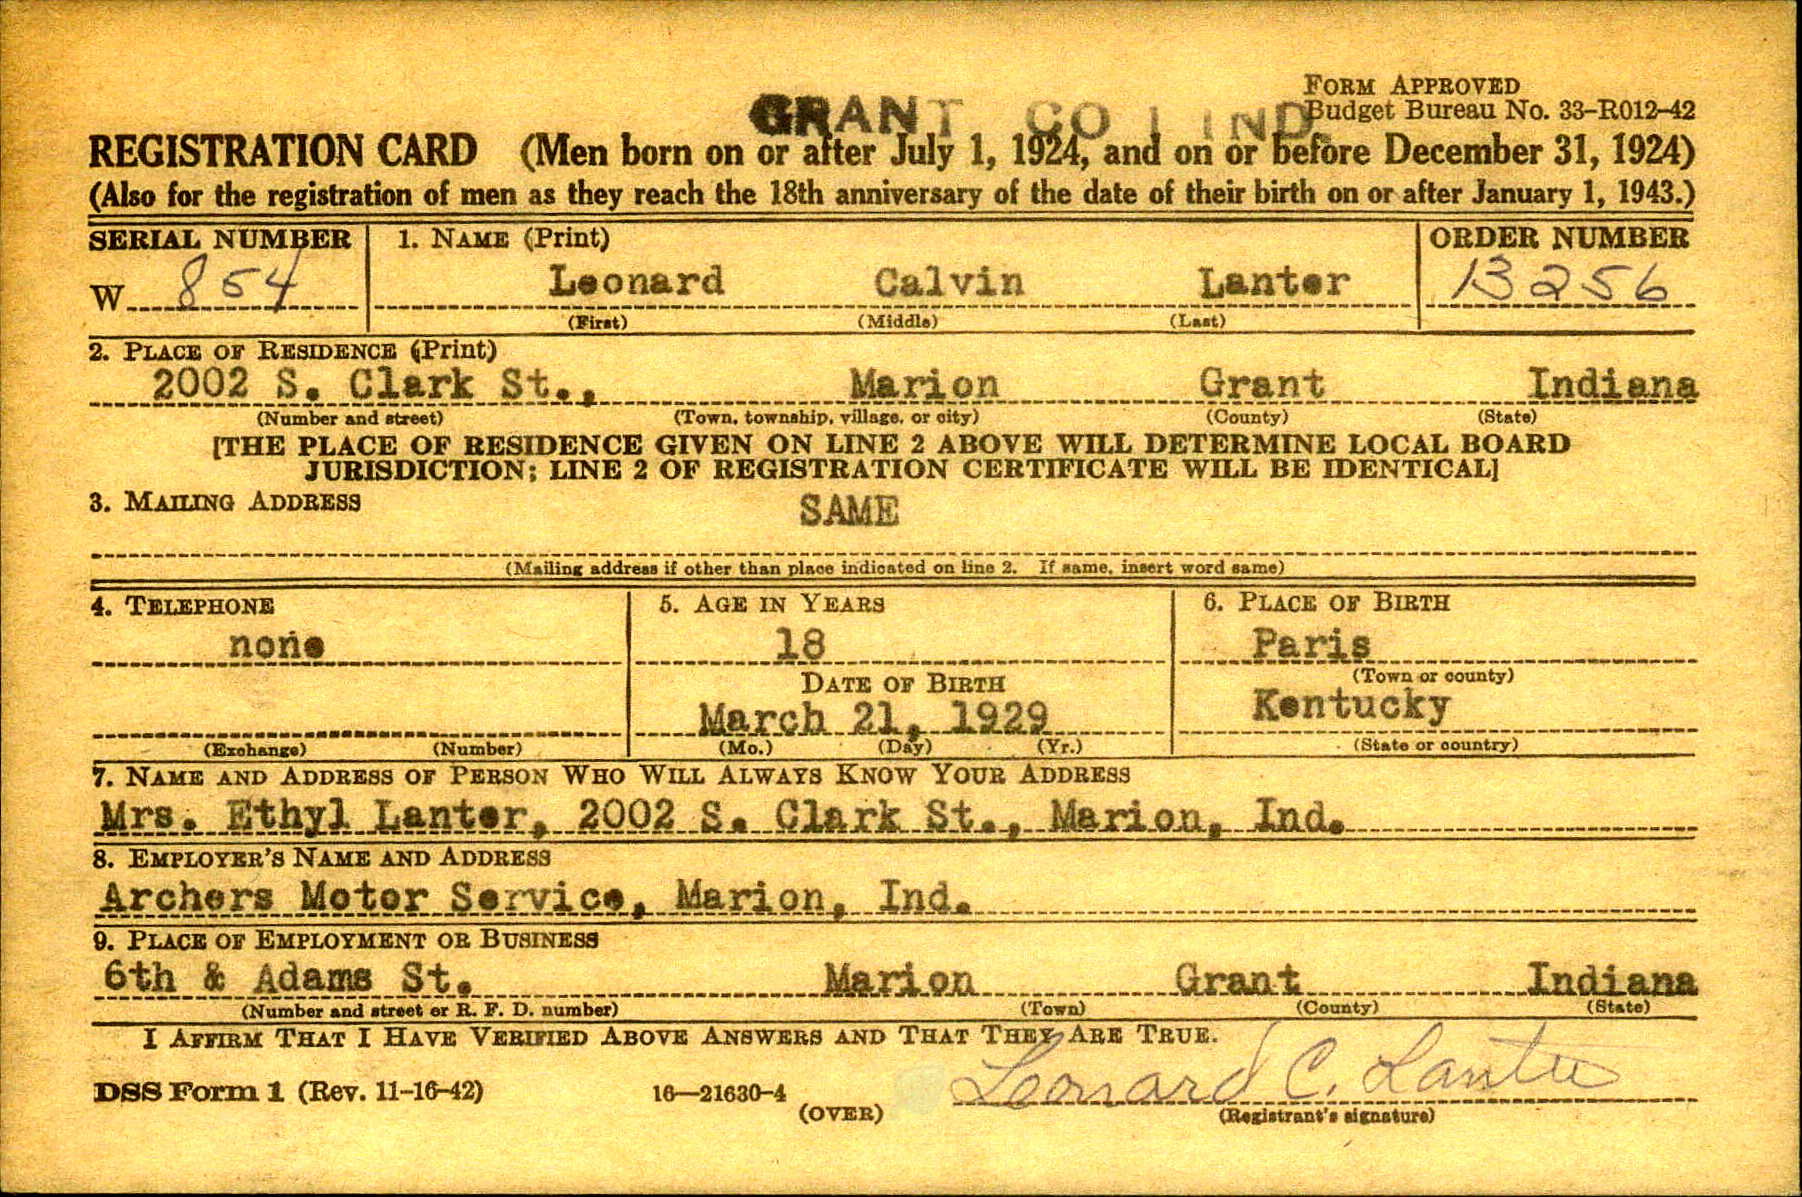 GRANT CO 1 IND
FORM APPROVED
Budget Bureau No. 33-R012-42
REGISTRATION CARD (Men born on or after July 1, 1924, and on or before December 31, 1924)
(Also for the registration of men as they reach the 18th anniversary of the date of their birth on or after January 1, 1943.)
SERIAL NUMBER 1. NAME (Print) ORDER NUMBER
W 854 Leonard Calvin Lanter 13256
(First) (Middle) (Last)
2. PLACE OF RESIDENCE (Print)
2002 S. Clark St., Marion Grant Indiana
(Number and street) (Town, township, village, or city) (County) (State)
[THE PLACE OF RESIDENCE GIVEN ON LINE 2 ABOVE WILL DETERMINE LOCAL BOARD
JURISDICTION; LINE 2 OF REGISTRATION CERTIFICATE WILL BE IDENTICAL]
3. MAILING ADDRESS SAME
(Mailing address if other than place indicated on line 2. If same, insert word same)
4. TELEPHONE 5. AGE IN YEARS 6. PLACE OF BIRTH
none 18 Paris
(Town or county)
DATE OF BIRTH Kentucky
March 21, 1929
(Exchange) (Number) (Mo.) (Day) (Yr.) (State or country)
7. NAME AND ADDRESS OF PERSON WHO WILL ALWAYS KNOW YOUR ADDRESS
Mrs. Ethyl Lanter, 2002 S. Clark St., Marion, Ind.
8. EMPLOYER'S NAME AND ADDRESS
Archers Motor Service, Marion, Ind.
9. PLACE OF EMPLOYMENT OR BUSINESS
6th & Adams St. Marion Grant Indiana
(Number and street or R. F. D. number) (Town) (County) (State)
I AFFIRM THAT I HAVE VERIFIED ABOVE ANSWERS AND THAT THEY ARE TRUE.
DSS Form 1 (Rev. 11-16-42) 16—21630-4 (OVER) Leonard C. Lanter
(Registrant's signature)